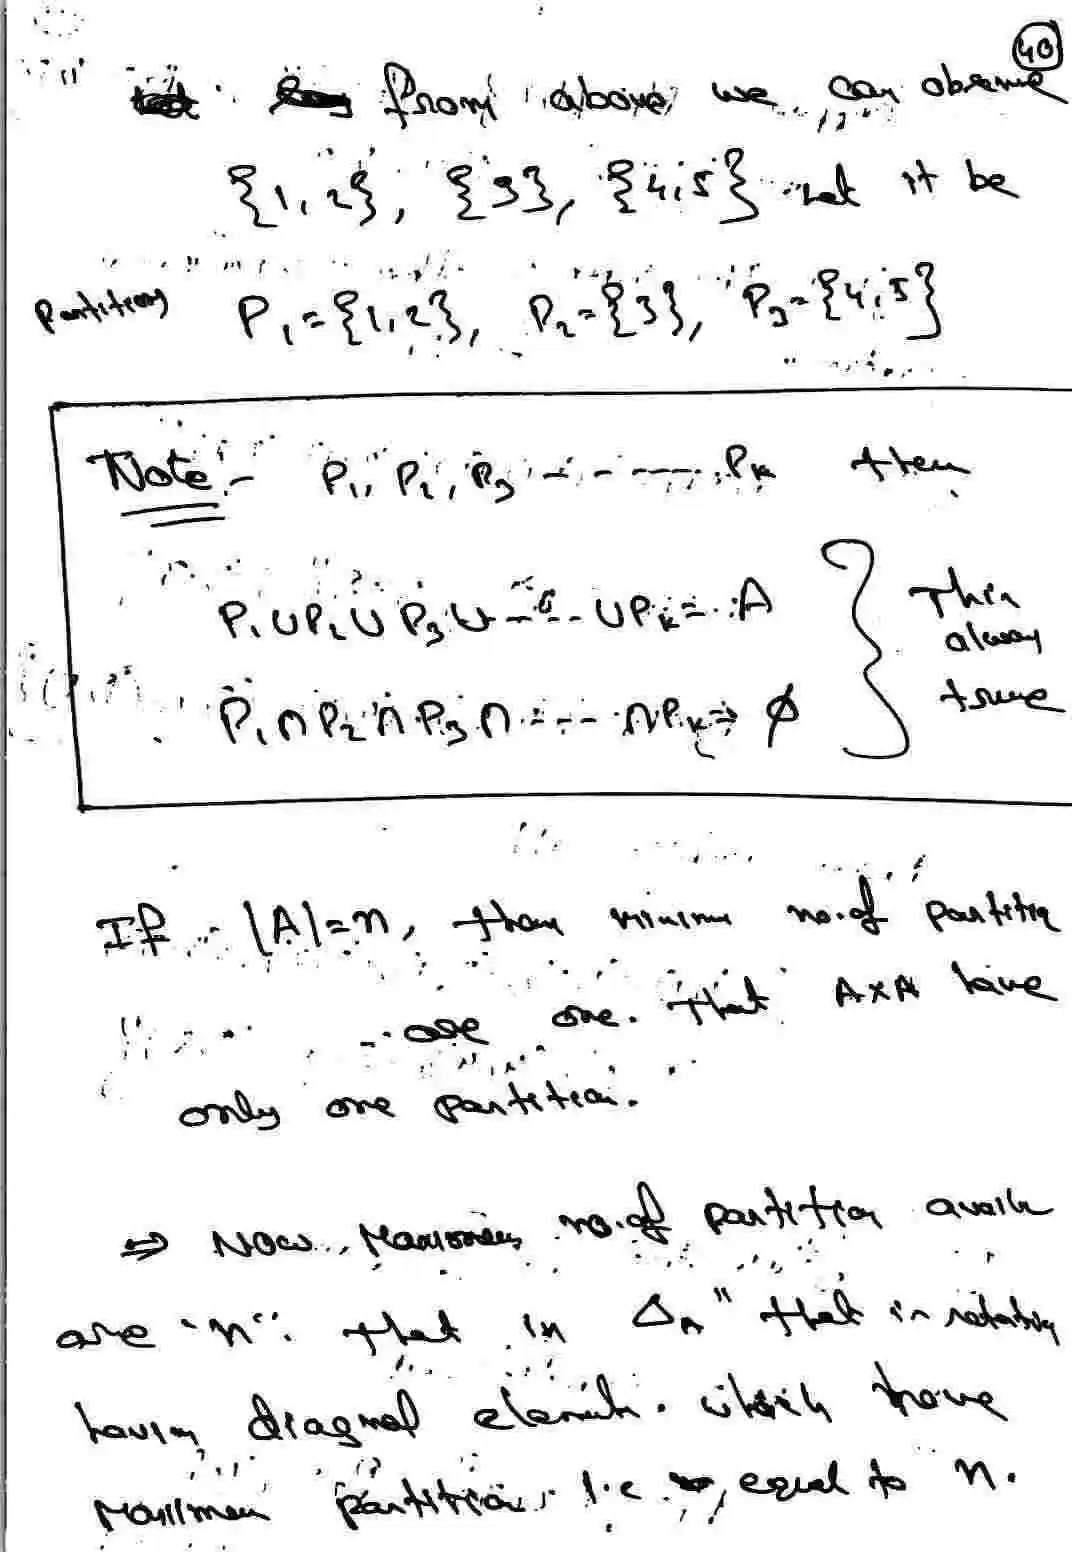 40
from above we can observe
{1,2}, {3}, {4,5} let it be
Partitions P₁={1,2}, P₂={3}, P₃={4,5}
Note:- P₁, P₂, P₃ ------- Pₖ then
P₁∪P₂∪P₃∪-----∪Pₖ = A
This
always
true
P₁∩P₂∩P₃∩-----∩Pₖ ⇒ ϕ
If |A|=n, then minimum no.of partition
are one. that A×A have
only one partition.
⇒ Now, Maximum no.of partition
are "n". that is Δ_A" that is relation
having diagnal elements. which have
Maximum partition, i.e equal to n.